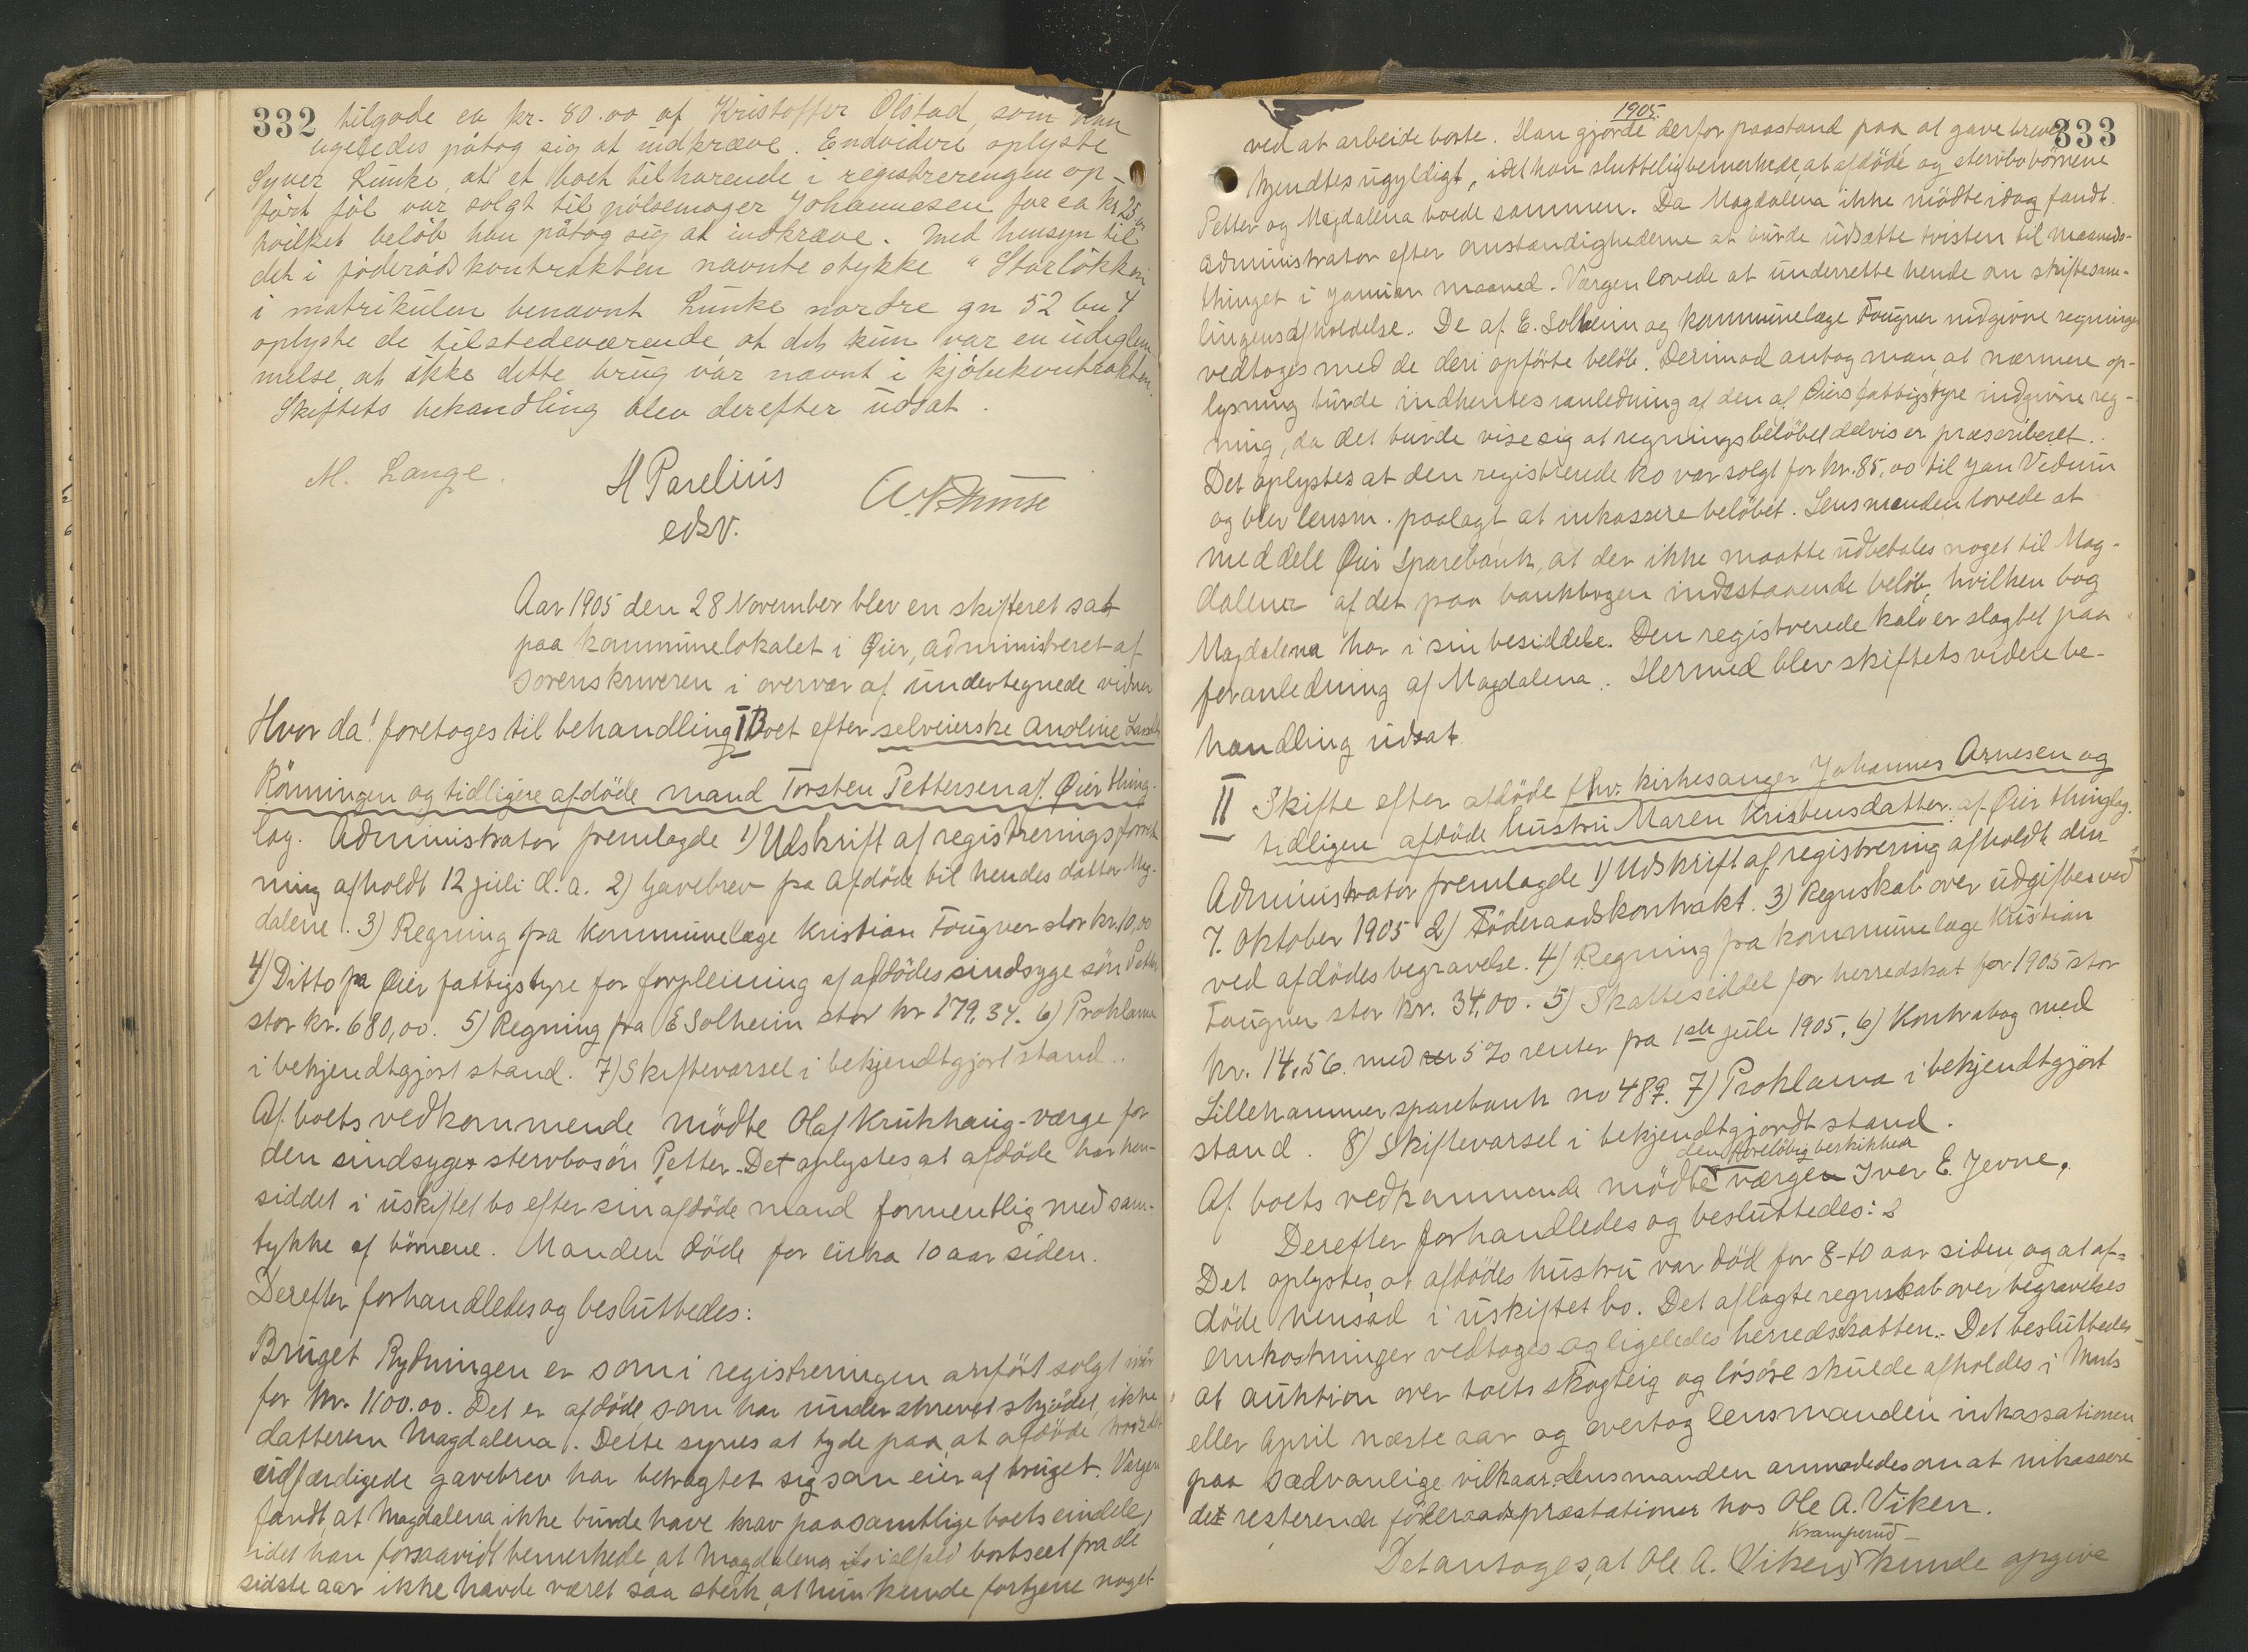 332
tilgode ca kr. 80.00 af Kristoffer Olstad, som han
ligeledes påtog sig at indkræve. Endvidere oplyste
Syver Lunke, at et boet tilhørende i registreringen op-
ført føl var solgt til pølsemager Johannesen for ca kr 25,00
hvilket beløb han påtog sig at indkræve. Med hensyn til
det i føderådskontrakten nævnte stykke "Storløkken
i matrikulen benævnt Lunke nordre gn 52 bn 4
oplyste de tilstedeværende at det kun var en udeglem
melse, at ikke dette brug var nævnt i kjøbekontrakten.
Skiftets behandling blev derefter udsat.
M. Lange.
H Parelius
edsv.
Aar 1905 den 28 November blev en skifteret sat
paa kommunelokalet i Øier, administreret af
sorenskriveren i overvær af undertegnede vidner
Hvor da! foretoges til behandling I Boet efter selveierske Anoline Larsd.
Rönningen og tidligere afdöde mand Torsten Pettersen af Øier thing-
lag. Administrator fremlagde 1) Udskrift af registreringsforret
ning afholdt 12 juli d. a. 2) Gavebrev fra afdöde til hendes datter Mag-
dalene. 3) Regning fra kommunelæge Kristian Fougner stor kr. 10,00
4) Ditto fra Øier fattigstyre for forpleining af afdödes sindsyge sön Petter
stor kr. 680,00. 5) Regning fra E Solheim stor kr 179,34. 6) Proklama
i bekjendtgjort stand. 7) Skiftevarsel i bekjendtgjort stand.
Af boets vedkommende mödte Olaf Krukhaug - værge for
den sindsyge stervbosön Petter. Det oplystes, at afdöde har hen-
siddet i uskiftet bo efter sin afdöde mand formentlig med sam-
tykke af börnene. Manden döde for cirka 10 aar siden.
Derefter forhandledes og besluttedes:
Bruget Rydningen er som i registreringen anfört solgt
for kr. 1100.00. Det er afdöde som har underskrevet skjödet, ikke
datteren Magdalena. Dette synes at tyde paa, at afdöde trods det
udfærdigede gavebrev har betragtet sig som eier af bruget. Værgen
fandt, at Magdalena ikke burde have krav paa samtlige boets eiendele,
idet han forsaavidt bemerkede, at Magdalena ialfald bortseet fra de
sidste aar ikke havde været saa sterk, at hun kunde fortjene noget
1905.
333
ved at arbeide borte. Han gjorde derfor paastand paa, at gavebrevet
kjendtes ugyldigt, idet han sluttelig bemerkede, at afdöde og stervbobörnene
Petter og Magdalena boede sammen. Da Magdalena ikke mödte idag fandt
administrator efter omstændighederne at burde udsætte tvisten til maaneds-
thinget i januar maaned. Værgen lovede at underrette hende om skiftesam-
lingens afholdelse. De af E. Solheim og kommunelæge Fougner indgivne regninger
vedtoges med de deri opförte belöb. Derimod antog man, at nærmere op-
lysning burde indhentes i anledning af den af Øiers fattigstyre indgivne reg-
ning, da det turde vise sig at regningsbelöbet delvis er præscriberet.
Det oplystes at den registrerede ko var solgt for kr. 85.00 til Jan Vedum
og blev lensm. paalagt at inkassere belöbet. Lensmanden lovede at
meddele Øier Sparebank, at der ikke maatte udbetales noget til Mag-
dalena af det paa bankbogen indestaaende belöb, hvilken bog
Magdalena har i sin besiddelse. Den registrerede kalv er slagtet paa
foranledning af Magdalena. Hermed blev skiftets videre be-
handling udsat.
II Skifte efter afdöde fhv. kirkesanger Johannes Arnesen og
tidligere afdöde hustru Maren Kristensdatter af Øier thinglag.
Administrator fremlagde 1) Udskrift af registrering afholdt den
7. oktober 1905 2) Föderaadskontrakt. 3) Regnskab over udgifter ved
ved afdödes begravelse. 4) Regning fra kommunelæge Kristian
Fougner stor kr. 34,00. 5) Skatteseddel for herredskat for 1905 stor
kr. 14,56 med 5 % renter fra 1ste juli 1905. 6) Kontrabog med
Lillehammer sparebank no 489. 7) Proklama i bekjendtgjört
stand. 8) Skiftevarsel i bekjendtgjordt stand.
den forelöbig beskikkede
Af boets vedkommende mödte værgen Iver E. Jevne.
Derefter forhandledes og besluttedes:
Det oplystes, at afdödes hustru var död for 8-10 aar siden, og at af-
döde hensad i uskiftet bo. Det aflagte regnskab over begravelses
omkostninger vedtoges og ligeledes herredskatten. Det besluttedes
at auktion over boets skogteig og lösöre skulde afholdes i Marts
eller April næste aar og overtog lensmanden inkassationen
paa sædvanlige vilkaar. Lensmanden anmodedes om at inkassere
det resterende föderaadspræstationer hos Ole A. Viken.
Kramperud
Det antoges, at Ole A. (Viken) kunde opgive